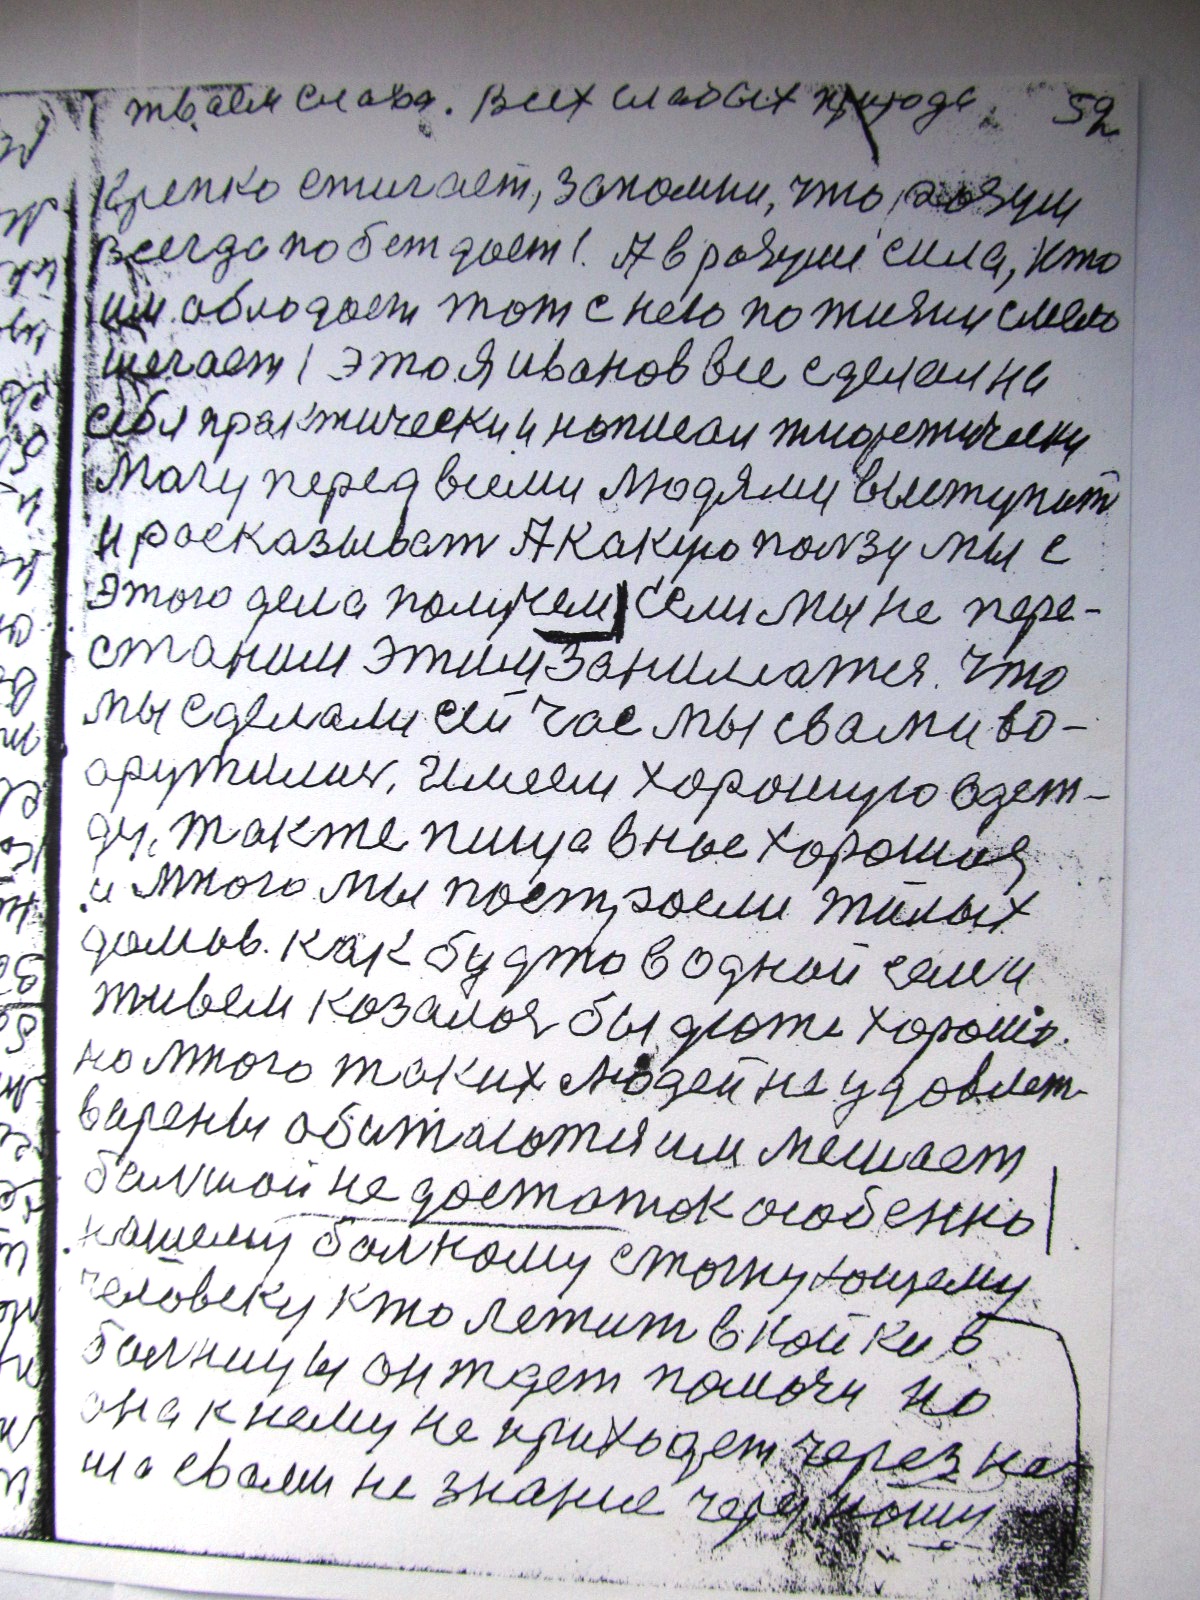 твоем слава. Всех слабых природа 59
крепко стигает, запомни, что розум
всегда побеждает! А в розуме сила, кто
им облодает тот с нею по жизни смело
шегает! Это я Иванов все сделал на
себя практически и написал тиоретически
Магу перед всеми людями выступит
и росказыват А какую ползу мы с
этого дела получем если мы не пере-
станим этим заниматся. Что
мы сделали сей час мы свами во-
аружилис, имеем хорошую одеж-
ду, также пища в нас хорошия
и много мы построели жилых
домов. как будто в одной семи
живем козалос бы дюже хорошо.
но много таких людей не удовлет-
варены обижаются им мешает
балшой не достаток особенно
нашему болному стогнущиму
человеку кто лежит в койки в
болницы он ждет помочи но
она к нему не приходет через на-
ша свами не знание через нашу